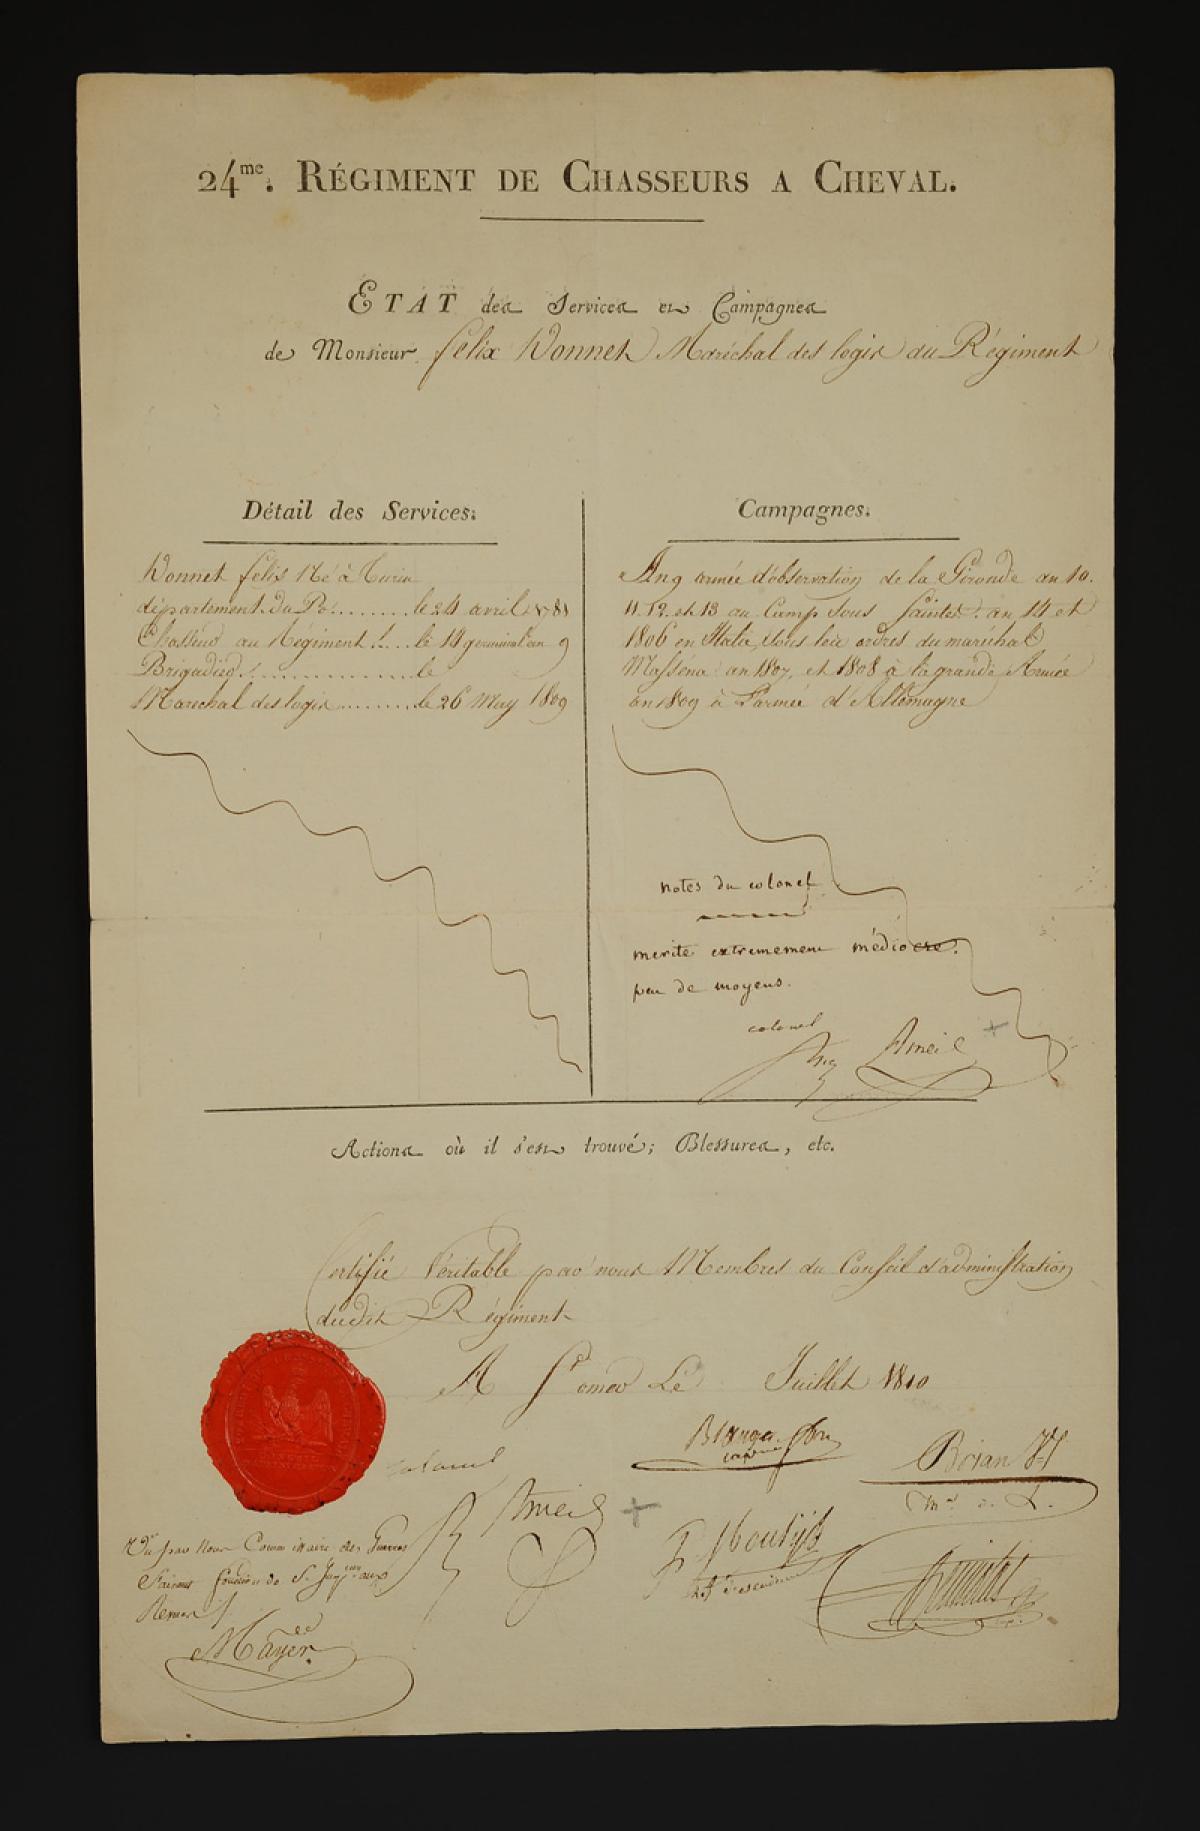 24me. RÉGIMENT DE CHASSEURS A CHEVAL.
ETAT des Services et Campagnes
de Monsieur félix Vonnet Maréchal des logis au Régiment
Détail des Services.
Vonnet félix Né à Turin
département du Po ........ le 24 avril 1781
Chasseur au Régiment ..... le 14 germinal an 9
Brigadier ................ le
Maréchal des logis ........ le 26 May 1809
Campagnes.
An 9 armée d'observation de la Gironde an 10.
11. 12. et 13 au Camp sous Saintes. an 14 et
1806 en Italie, sous les ordres du maréchal
Masséna. an 1807, et 1808 à la grande Armée
an 1809 à l'armée d'Allemagne
notes du colonel
merite extremement médiocre.
peu de moyens.
colonel
Ameil
Actions où il s'est trouvé; Blessures, etc.
Certifié Véritable par nous Membres du Conseil d'administration
dudit Régiment
A St omer Le Juillet 1810
colonel
Ameil
Vu par Nous Commissaire des Guerres
Mayer